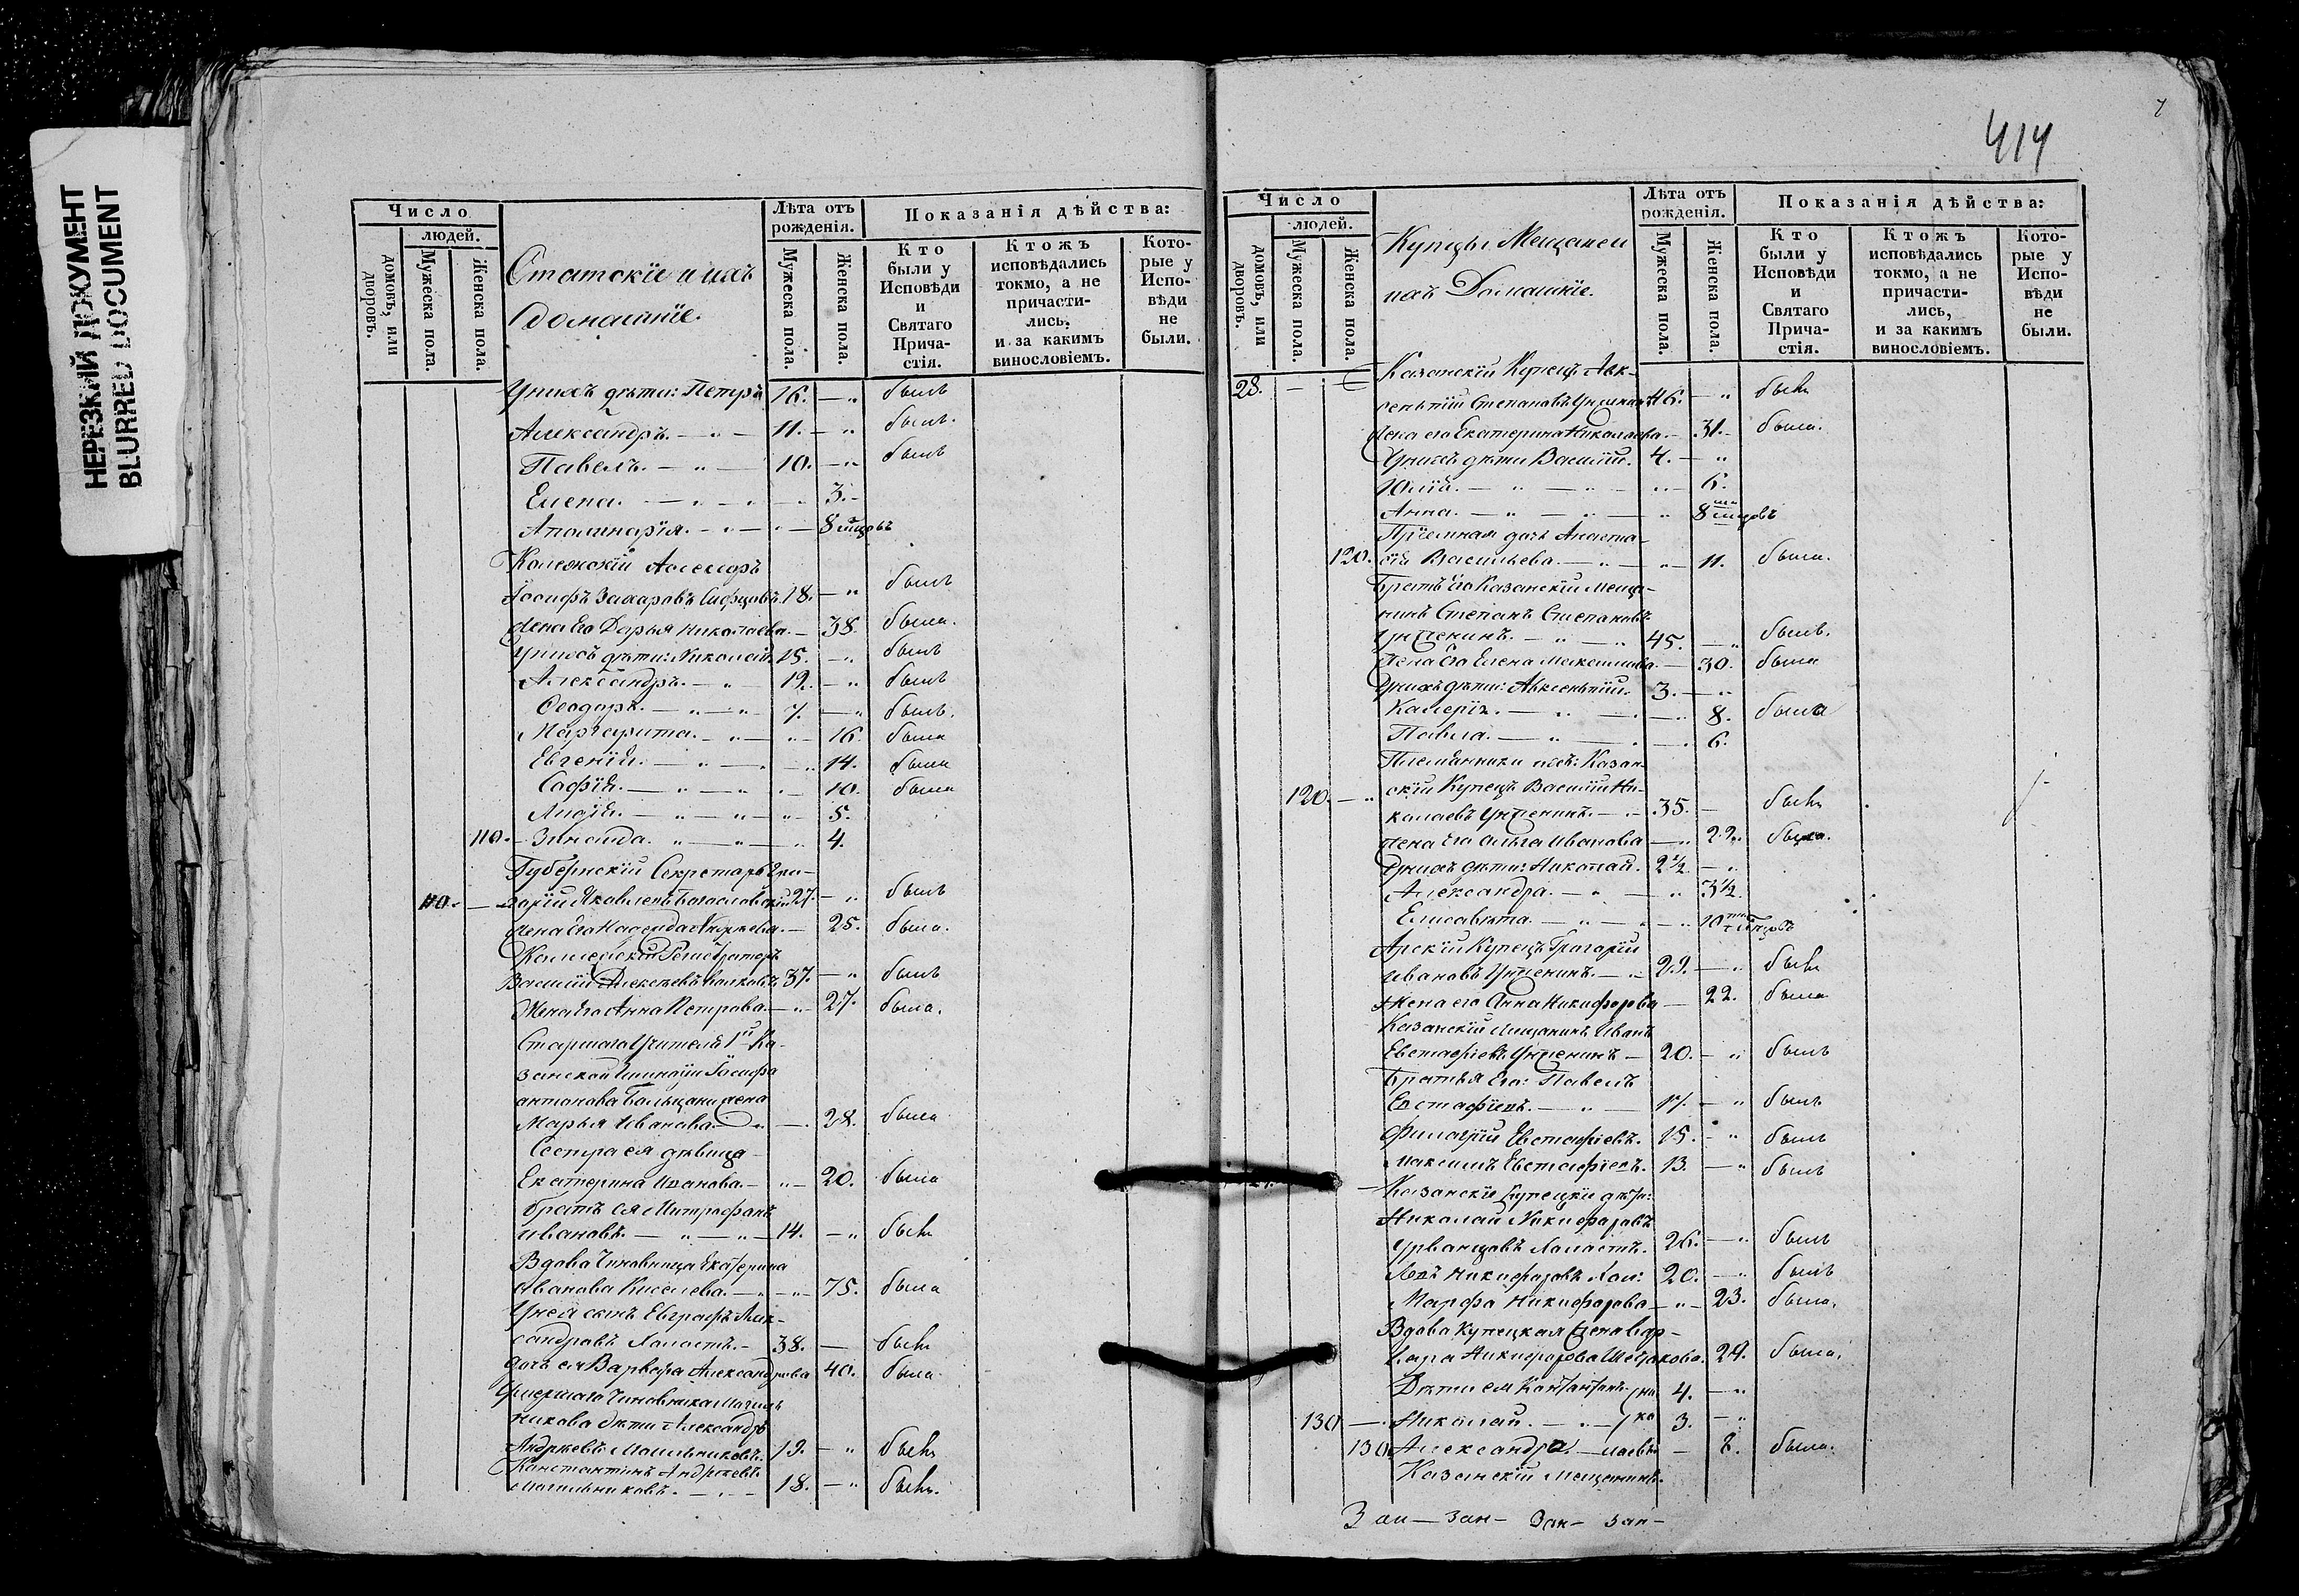 НЕРЕЗКИЙ ДОКУМЕНТ
BLURRED DOCUMENT
Число
людей.
домовъ, или дворовъ.
Мужеска пола.
Женска пола.
Статскіе и ихъ
домашніе.
Лѣта отъ рожденія.
Мужеска пола.
Женска пола.
Показанія дѣйства:
Кто были у Исповѣди и Святаго Прича- стія.
Ктожъ исповѣдались токмо, а не причасти- лись, и за какимъ винословіемъ.
Кото- рые у Испо- вѣди не были.
У нихъ дѣти: Петръ 16. — „ былъ
Александръ. — „ — 11. — „ былъ.
Павелъ. — „ — 10. — „ былъ
Елена. — „ — „ — 3. —
Аполинарія. — „ — „ — 8 мцовъ
Колежскій Ассесоръ
Іосифъ Захаровъ 18. — „ былъ
Жена Его Дарья Николаева. — 38. была.
У нихъ дѣти: Николай 15. — „ былъ
Александръ. — „ 12. — „ былъ
Ѳеодоръ. — „ — „ 7. — „ былъ.
Маргарита. — „ — „ — 16. была
Евгенія. — „ — „ 14. была
Софія. — „ — „ — 10. была
Лидія. — „ — „ — „ 5.
110. — Зинаида. „ — „ — „ 4.
Губернскій Секретарь
110. — Яковлевъ Богословскій 27. — „ былъ
Жена Его Надежда Андреева. — 25. была.
Коллежскій Регистраторъ
Василій Алексѣевъ Волковъ 37. — „ былъ
Жена Его Анна Петрова. — „ — 27. была.
Старшаго Учителя 1й Ка-
занской Гимназіи Іосифа
Антонова Больцани жена
Марья Иванова. — „ — 28. была
Сестра ея дѣвица
Екатерина Иванова. — „ — 20. была
братъ ея Митрофанъ
Ивановъ. — „ — „ — 14. — „ былъ
Вдова Чиновница Екатерина
Иванова Киселева. — „ — 75. была
У ней сынъ Евграфъ Алек-
сандровъ Холостъ. — 38. — былъ
дочь ея Варвара Александрова 40. была.
Умершаго Чиновника
дѣти Александръ
Андреевъ 19. — „ былъ
Константинъ Андреевъ
18. — „ былъ.
7
414
Число
людей.
домовъ, или дворовъ.
Мужеска пола.
Женска пола.
Купцы Мещане и
ихъ Домашніе.
Лѣта отъ рожденія.
Мужеска пола.
Женска пола.
Показанія дѣйства:
Кто были у Исповѣди и Святаго Прича- стія.
Ктожъ исповѣдались токмо, а не причасти- лись, и за какимъ винословіемъ.
Кото- рые у Испо- вѣди не были.
28. — Казанскій Купецъ Авк-
сентій Степановъ Унженинъ 46. — „ былъ
Жена его Екатерина Николаева. — 31. — была.
У нихъ дѣти Василій. 4. — „
Юлія. — „ — „ — „ — 6.
Анна. — „ — „ — „ 8 ми мцовъ
Пріемная дочь Анаста-
120. сія Васильева. — „ — „ — 11. была.
Братъ Его Казанскій Меща-
нинъ Степанъ Степановъ
Унженинъ. — „ — 45. — „ былъ.
Жена Его Елена — 30. была
У нихъ дѣти: Авксентій. 3. — „
Калерія. — „ — 8. была
Павла. — „ — 6.
Племянники ихъ: Казан-
120. — „ скій Купецъ Василій Ни-
колаевъ Унженинъ. — „ — 35. — былъ
жена Его Ольга Иванова — „ 22. была.
У нихъ дѣти: Николай. 2½ — „
Александра. — „ — „ 3½
Елисавѣта. — „ — „ 10 ти мцовъ
Арскій Купецъ Григорій
Ивановъ Унженинъ. — „ 29. — „ былъ
жена его Анна Никифорова — 22. была
Казанскій Мещанинъ Иванъ
Евстафіевъ Унженинъ — 20. — „ былъ
Братья Его: Павелъ
Евстафіевъ. — „ — 17. — „ былъ
Филагрій Евстафіевъ. 15. — „ былъ
Максимъ Евстафіевъ. 13. — „ былъ
Казанскіе Купецкіе дѣти:
Николай Никифоровъ
Урванцовъ Холостъ. 26. — „ былъ
Левъ Никифоровъ Хол: 20. — „ былъ
Марфа Никифорова — „ — 23. была.
Вдова Купецкая жена Вар-
вара Никифорова 29. была.
Дѣти ея Константинъ 4. — „
130 — Николай. — „ — 3. — „
130 Александра — 8. была.
Казанскій Мещанинъ.